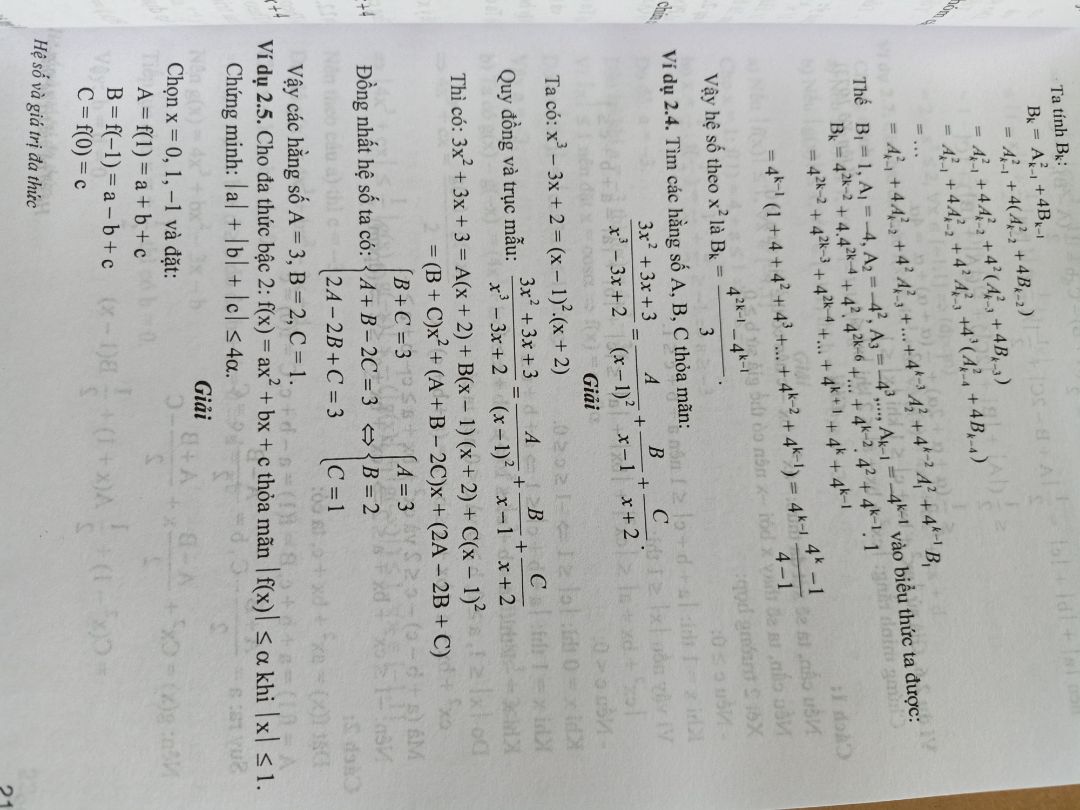 Ta tính Bₖ:
Bₖ = A²ₖ₋₁ + 4Bₖ₋₁
= A²ₖ₋₁ + 4(A²ₖ₋₂ + 4Bₖ₋₂)
= A²ₖ₋₁ + 4A²ₖ₋₂ + 4²(A²ₖ₋₃ + 4Bₖ₋₃)
= A²ₖ₋₁ + 4A²ₖ₋₂ + 4²A²ₖ₋₃ + 4³(A²ₖ₋₄ + 4Bₖ₋₄)
= ...
= A²ₖ₋₁ + 4A²ₖ₋₂ + 4²A²ₖ₋₃ + ... + 4ᵏ⁻³A₂² + 4ᵏ⁻²A₁² + 4ᵏ⁻¹B₁
Thế B₁ = 1, A₁ = –4, A₂ = –4², A₃ = –4³,..., Aₖ₋₁ = –4ᵏ⁻¹ vào biểu thức ta được:
Bₖ = 4²ᵏ⁻² + 4.4²ᵏ⁻⁴ + 4² 4²ᵏ⁻⁶ + ... + 4ᵏ⁻². 4² + 4ᵏ⁻¹. 1
= 4²ᵏ⁻² + 4²ᵏ⁻³ + 4²ᵏ⁻⁴ + ... + 4ᵏ⁺¹ + 4ᵏ + 4ᵏ⁻¹
= 4ᵏ⁻¹(1 + 4 + 4² + 4³ +... + 4ᵏ⁻² + 4ᵏ⁻¹) = 4ᵏ⁻¹ (4ᵏ – 1)/(4 – 1)
Vậy hệ số theo x² là Bₖ = (4²ᵏ⁻¹ – 4ᵏ⁻¹)/3.
Ví dụ 2.4. Tìm các hằng số A, B, C thỏa mãn:
(3x² + 3x + 3)/(x³ – 3x + 2) = A/(x – 1)² + B/(x – 1) + C/(x + 2).
Giải
Ta có: x³ – 3x + 2 = (x – 1)².(x + 2)
Quy đồng và trục mẫu: (3x² + 3x + 3)/(x³ – 3x + 2) = A/(x – 1)² + B/(x – 1) + C/(x + 2)
Thì có: 3x² + 3x + 3 = A(x + 2) + B(x – 1) (x + 2) + C(x – 1)²
= (B + C)x² + (A + B – 2C)x + (2A – 2B + C)
Đồng nhất hệ số ta có: { B + C = 3 ; A + B – 2C = 3 ; 2A – 2B + C = 3 ⇔ { A = 3 ; B = 2 ; C = 1
Vậy các hằng số A = 3, B = 2, C = 1.
Ví dụ 2.5. Cho đa thức bậc 2: f(x) = ax² + bx + c thỏa mãn |f(x)| ≤ α khi |x| ≤ 1.
Chứng minh: |a| + |b| + |c| ≤ 4α.
Giải
Chọn x = 0, 1, –1 và đặt:
A = f(1) = a + b + c
B = f(–1) = a – b + c
C = f(0) = c
Hệ số và giá trị đa thức
21